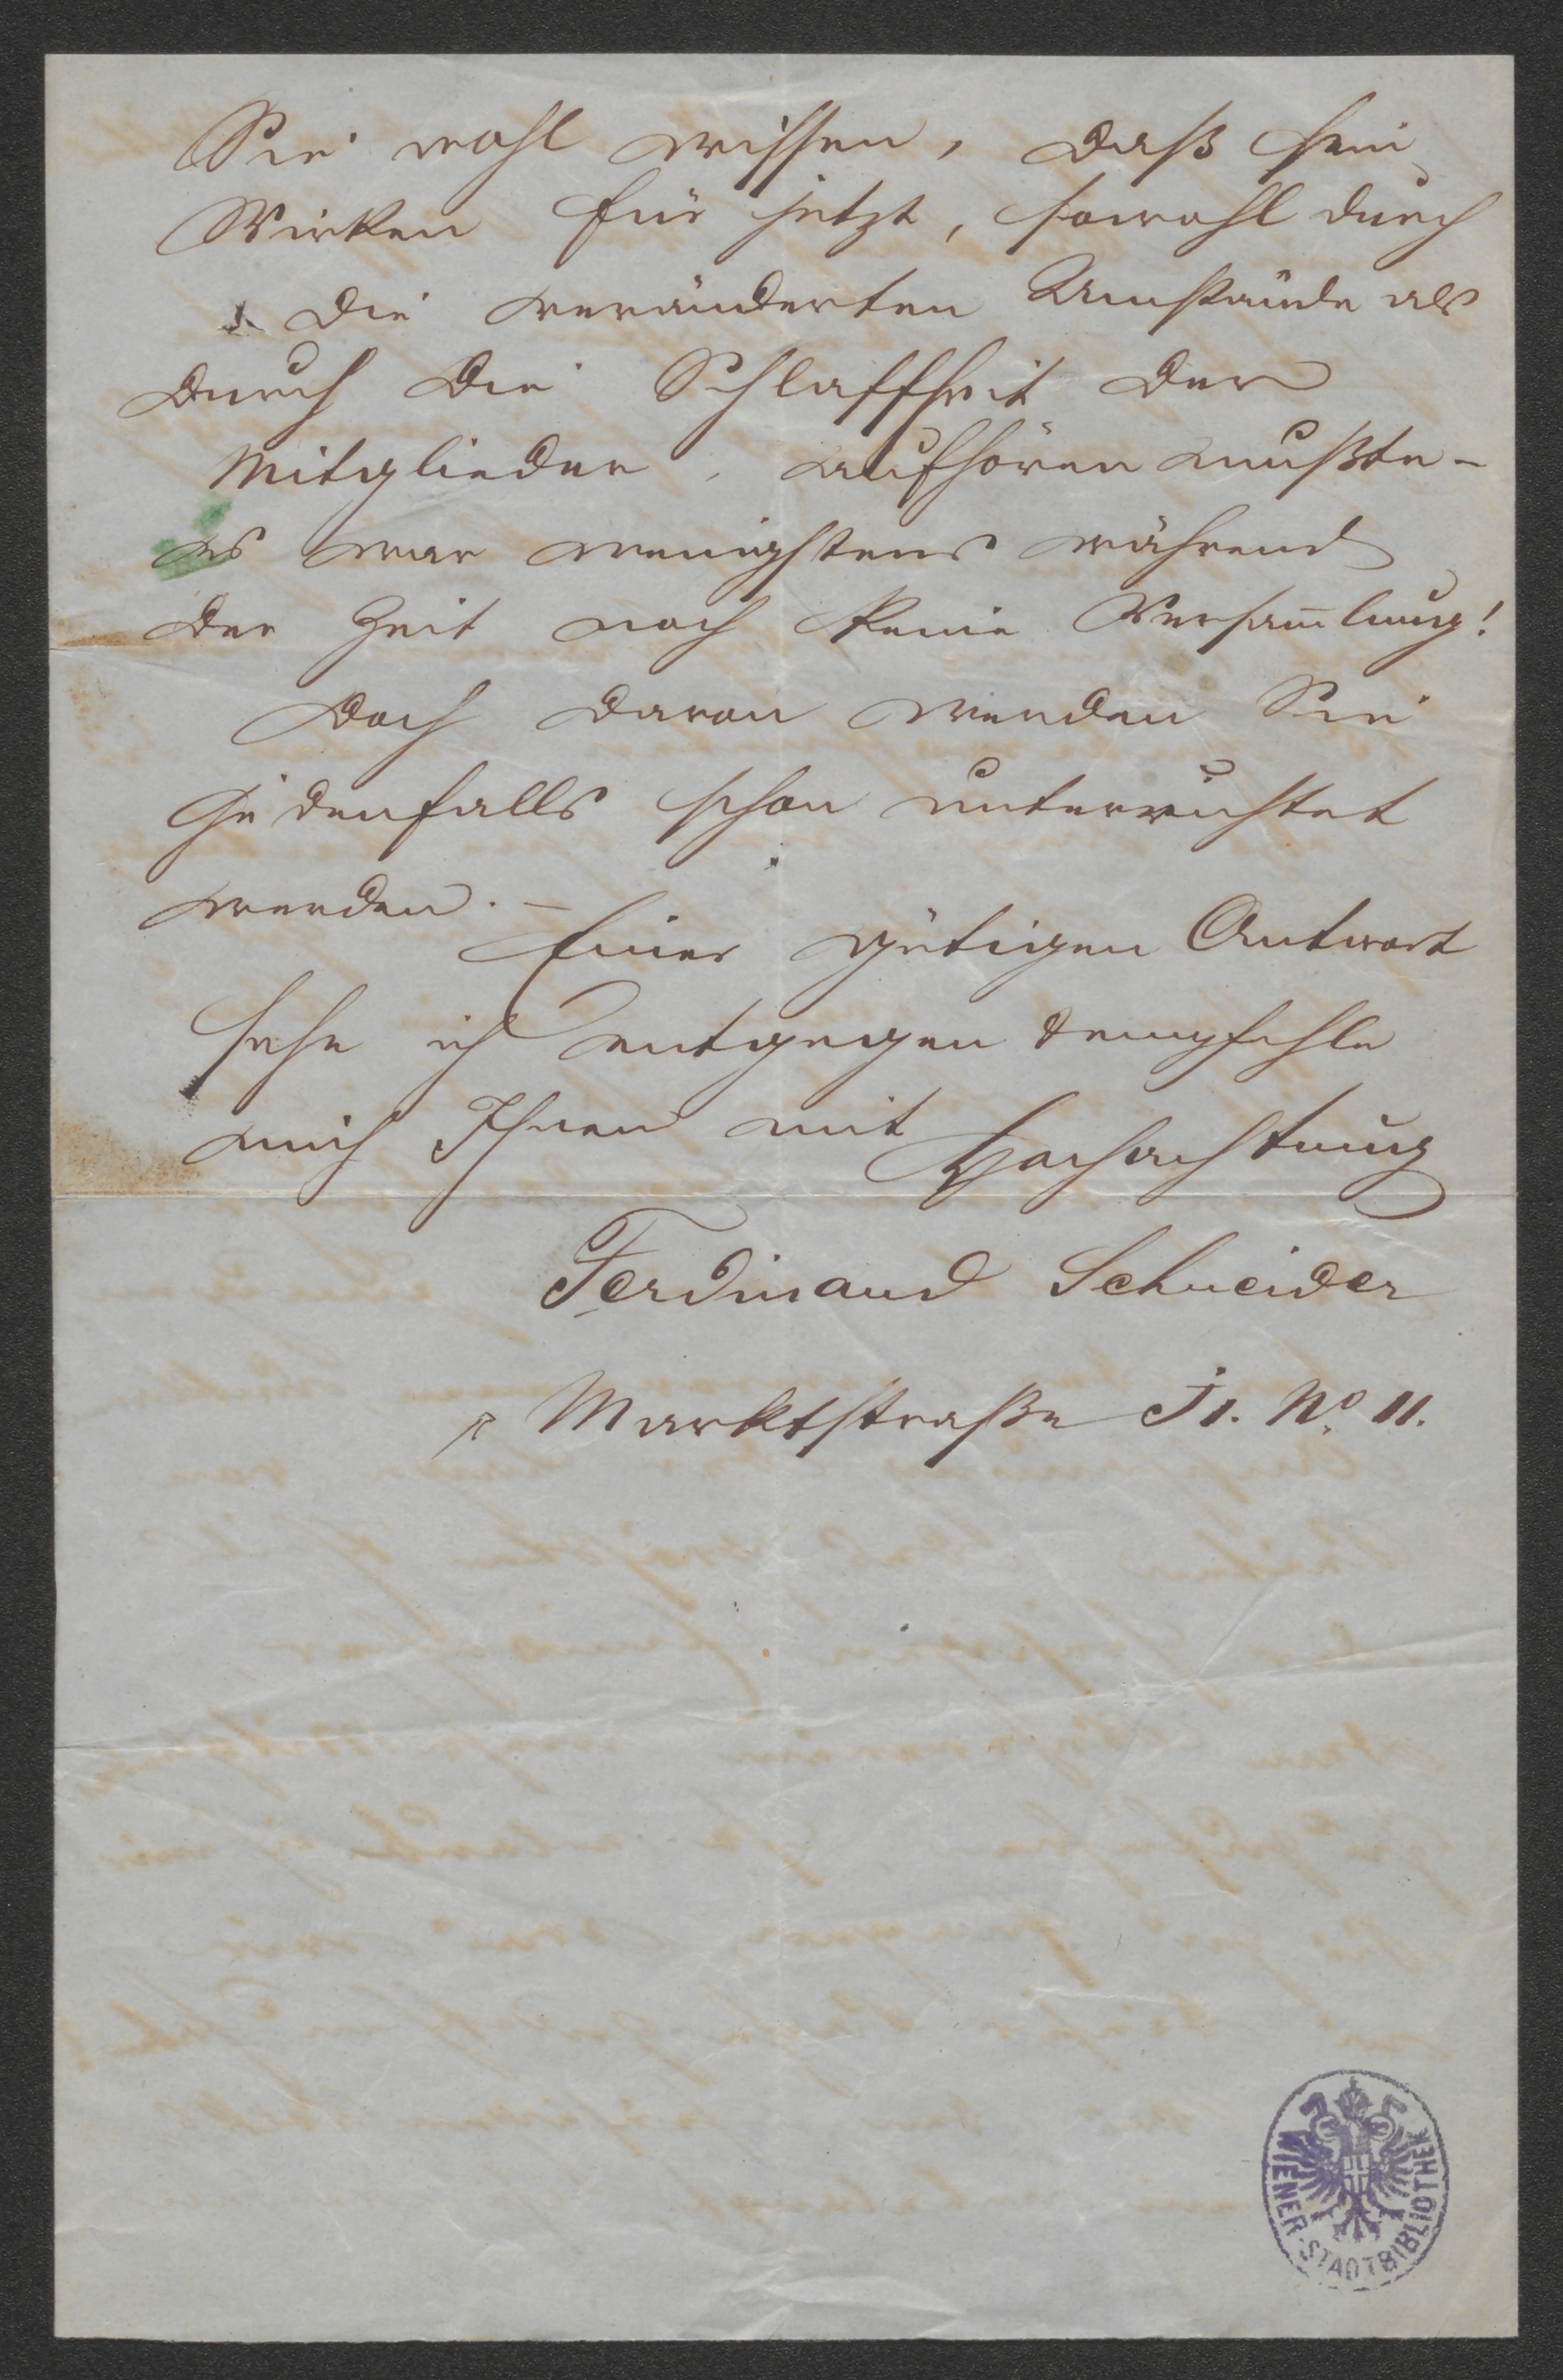 Sie wohl wissen, daß sein
Wirken für jetzt, sowohl durch
die veränderten Umstände als
durch die Schlaffheit der
Mitglieder, aufhören mußte –
es war wenigstens während
der Zeit noch keine Versam̄lung!
Doch davon werden Sie
jedenfalls schon unterrichtet
werden. –
Einer gütigen Antwort
sehe ich entgegen & empfehle
mich Ihnen mit Hochachtung
Ferdinand Schneider
Marktstraße J1. No. 11.
WIENER STADTBIBLIOTHEK